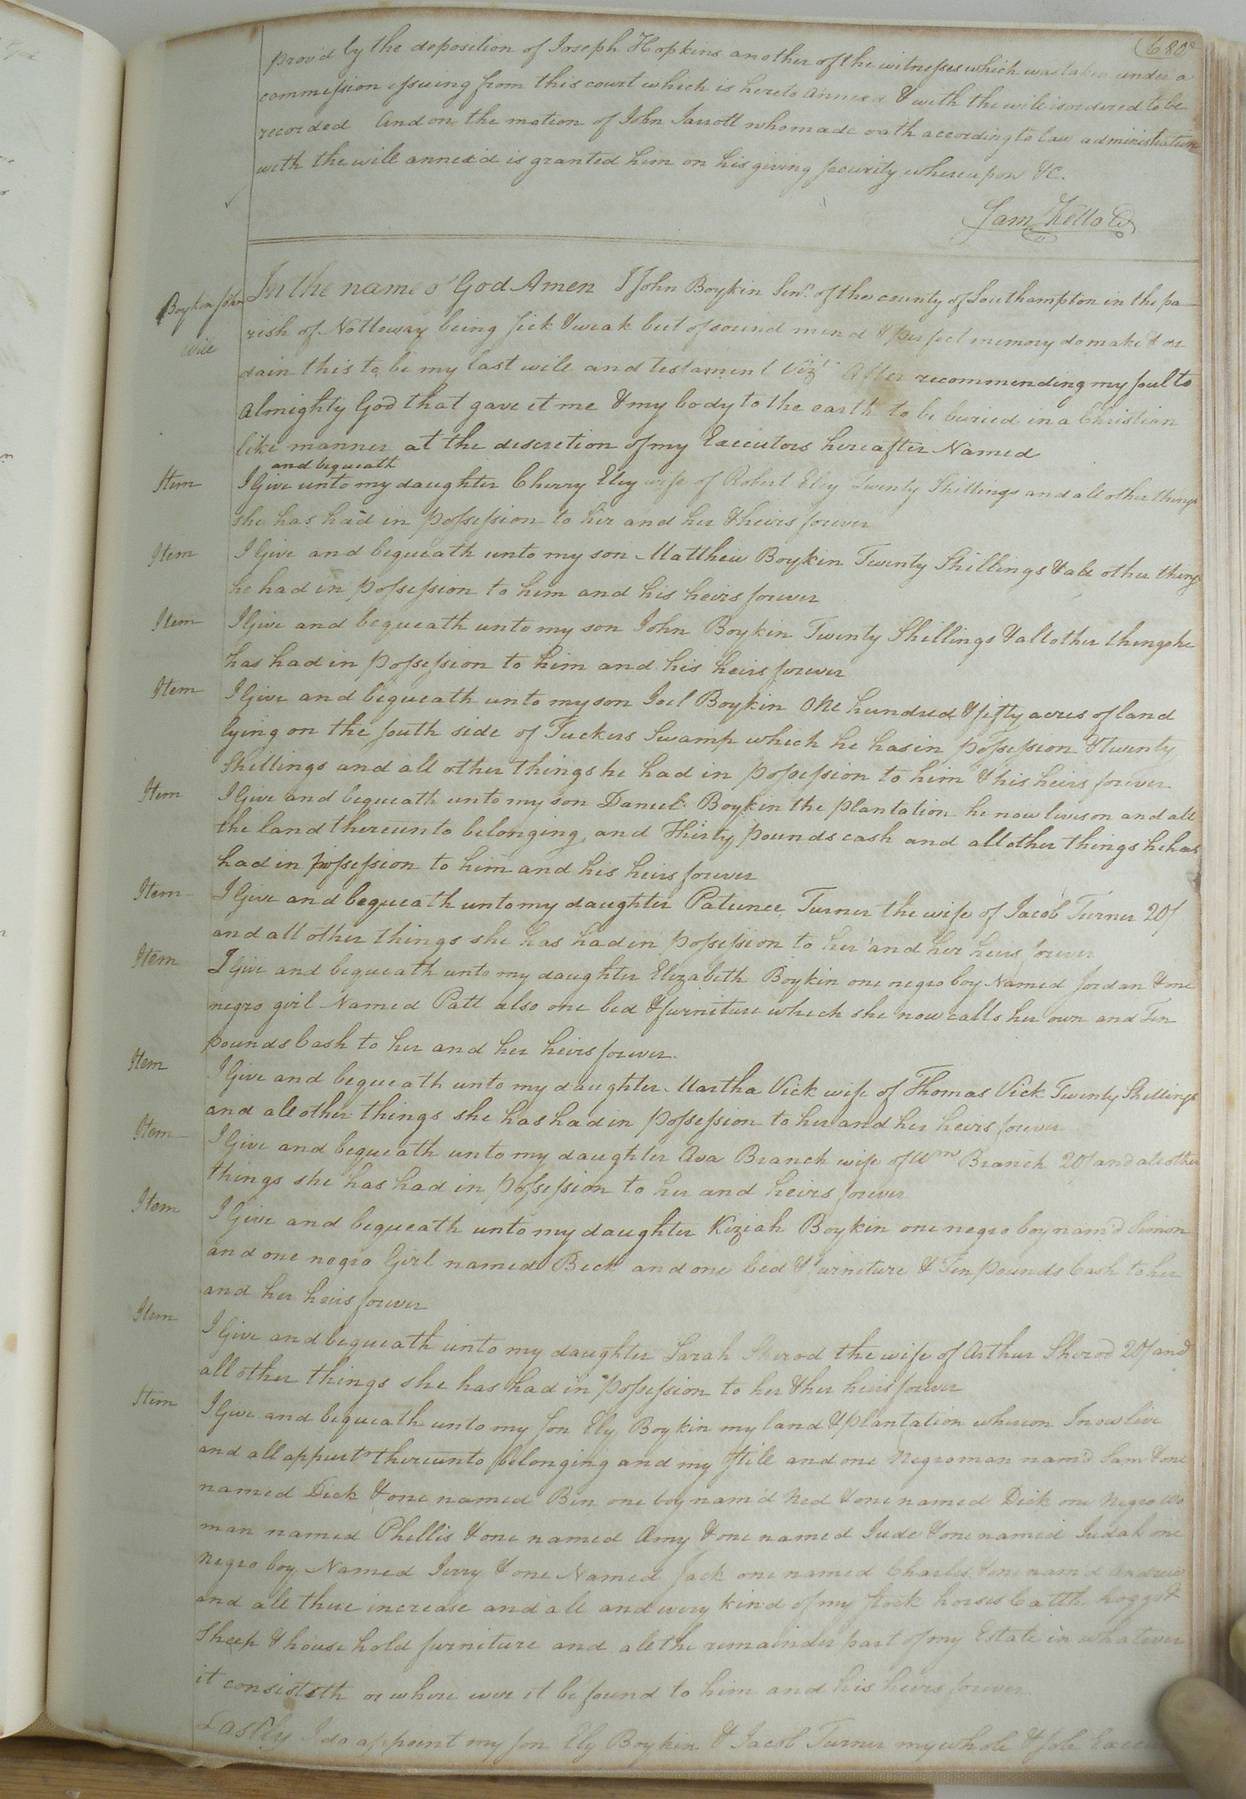 (680
prov'd by the deposition of Joseph Hopkins another of the witnesses which was taken under a
commission issuing from this court which is hereto annexed & with the will is ordered to be
recorded And on the motion of John Jarrott who made oath according to law administration
with the will annex'd is granted him on his giving security whereupon &c.
Sam Kello
Boykin John
Will
In the name of God Amen I John Boykin Senr. of the county of Southampton in the pa-
rish of Nottoway being sick & weak but of sound mind & perfect memory do make & or
dain this to be my last will and testament Vizt After recommending my soul to
Almighty God that gave it me & my body to the earth to be buried in a Christian
like manner at the discretion of my Executors hereafter Named
and bequeath
Item I Give unto my daughter Cherry Eley wife of Robert Eley Twenty Shillings and all other things
she has had in possession to her and her heirs forever
Item I Give and bequeath unto my son Matthew Boykin Twenty Shillings & all other things
he had in possession to him and his heirs forever
Item I Give and bequeath unto my son John Boykin Twenty Shillings & all other things he
has had in possession to him and his heirs forever
Item I Give and bequeath unto my son Joel Boykin One hundred & fifty acres of land
lying on the south side of Tuckers Swamp which he has in possession & Twenty
Shillings and all other things he had in possession to him & his heirs forever
Item I Give and bequeath unto my son Daniel Boykin the plantation he now lives on and all
the land thereunto belonging, and Thirty pounds cash and all other things he has
had in possession to him and his heirs forever
Item I Give and bequeath unto my daughter Patience Turner the wife of Jacob Turner 20/
and all other things she has had in possession to her and her heirs forever
Item I Give and bequeath unto my daughter Elizabeth Boykin one negro boy Named Jordan & one
negro girl Named Patt also one bed & furniture which she now calls her own and Ten
pounds Cash to her and her heirs forever.
Item I Give and bequeath unto my daughter Martha Vick wife of Thomas Vick Twenty Shillings
and all other things she has had in possession to her and her heirs forever
Item I Give and bequeath unto my daughter Ava Branch wife of Wm Branch 20/ and all other
things she has had in possession to her and heirs forever
Item I Give and bequeath unto my daughter Kiziah Boykin one negro boy nam'd Simon
and one negro Girl named Beck and one bed & furniture & Ten pounds Cash to her
and her heirs forever
Item I Give and bequeath unto my daughter Sarah Sherod the wife of Arthur Sherod 20/ and
all other things she has had in possession to her & her heirs forever
Item I Give and bequeath unto my son Ely Boykin my land & plantation whereon I now live
and all appurts thereunto belonging and my still and one Negro man nam'd Sam & one
named Dick & one named Ben one boy nam'd Ned & one named Dick one Negro wo
man named Phillis & one named Amy & one named Jude & one named Judah one
Negro boy Named Jerry & one Named Jack one named Charles & one nam'd Andrew
and all thire increase and all and every kind of my stock horses Cattle hoggs &
Sheep & house hold furniture and all the remainder part of my Estate in whatever
it consisteth or where ever it be found to him and his heirs forever
Lastly I do appoint my son Ely Boykin & Jacob Turner my whole & sole